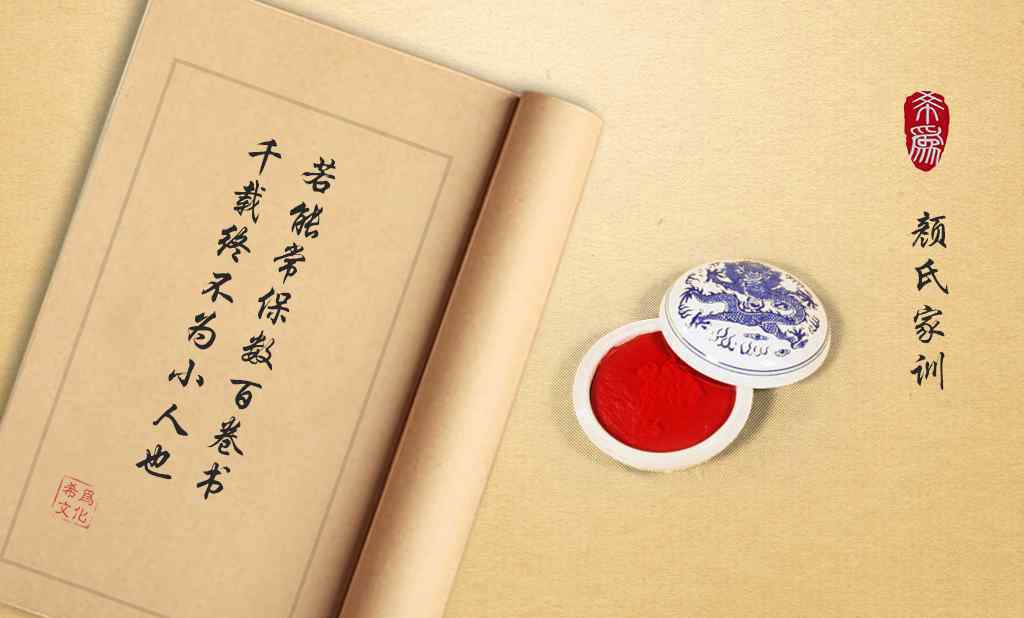 若能常保数百卷书
千载终不为小人也
希爲
文化
希爲
颜氏家训